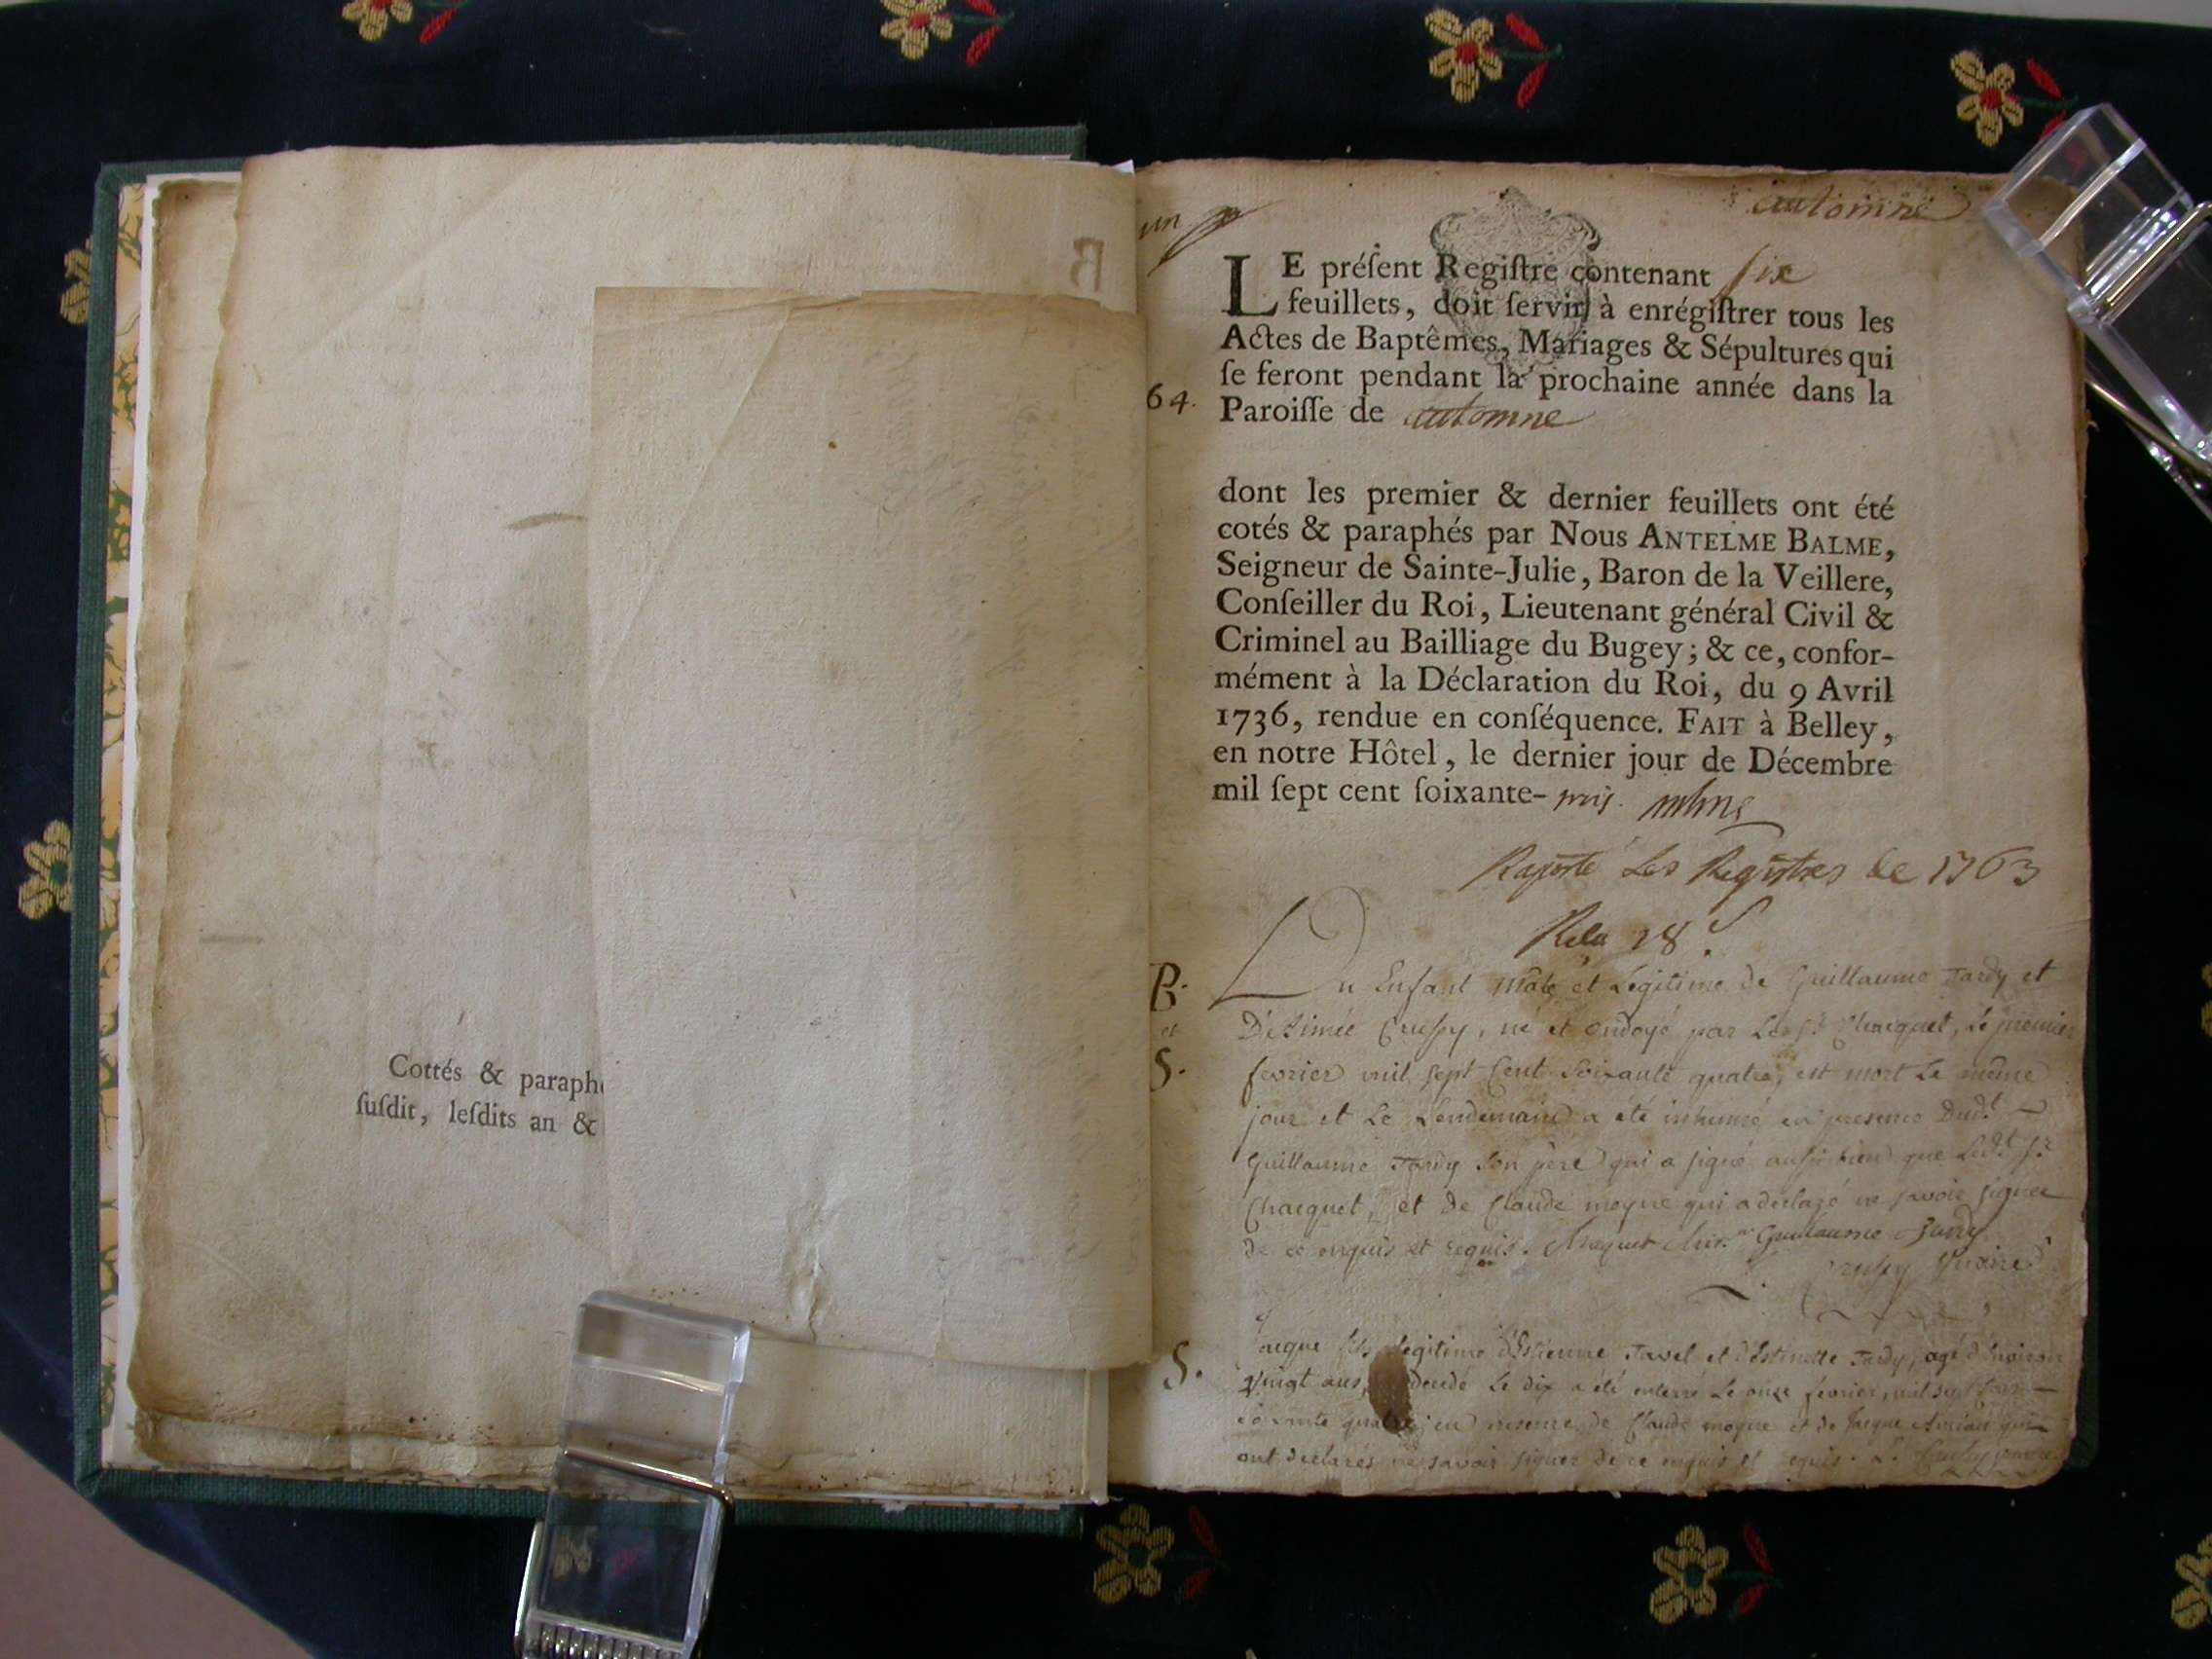 Cottés & paraphé
ſuſdit, leſdits an &
un
automne
LE préſent Regiſtre contenant six
feuillets, doit ſervir à enrégiſtrer tous les
Actes de Baptêmes, Mariages & Sépultures qui
ſe feront pendant la prochaine année dans la
64. Paroiſſe de automne
dont les premier & dernier feuillets ont été
cotés & paraphés par Nous ANTELME BALME,
Seigneur de Sainte-Julie, Baron de la Veillere,
Conſeiller du Roi, Lieutenant général Civil &
Criminel au Bailliage du Bugey; & ce, confor-
mément à la Déclaration du Roi, du 9 Avril
1736, rendue en conſéquence. FAIT à Belley,
en notre Hôtel, le dernier jour de Décembre
mil ſept cent ſoixante-trois.
Raporté Les Registres de 1763
18
B. Un Enfant Mâle et Légitime de Guillaume Tardy et
et D'Aimée Crussy, né et ondoyé par Led. Sr. Charquet, Le premier
S. fevrier mil sept Cent Soixante quatre, est mort Le même
jour et Le Lendemain a été inhumé en presence Dud.t
Guillaume Tardy Son père qui a signé aussi bien que Led.t Sr.
Charquet, et de Claude moyne qui a declaré ne savoir signer
de ce enquis et requis. Guillaume Tardy
S. Jaque fils Légitime d'Estienne Tavel et d'Estiennette Tardy, agé d'Environ
Vingt ans, decedé Le dix a été enterré Le onze fevrier, mil sept Cent
soixante quatre, en presence de Claude moyne et de Jaque qui
ont declarés ne savoir signer de ce enquis et requis.